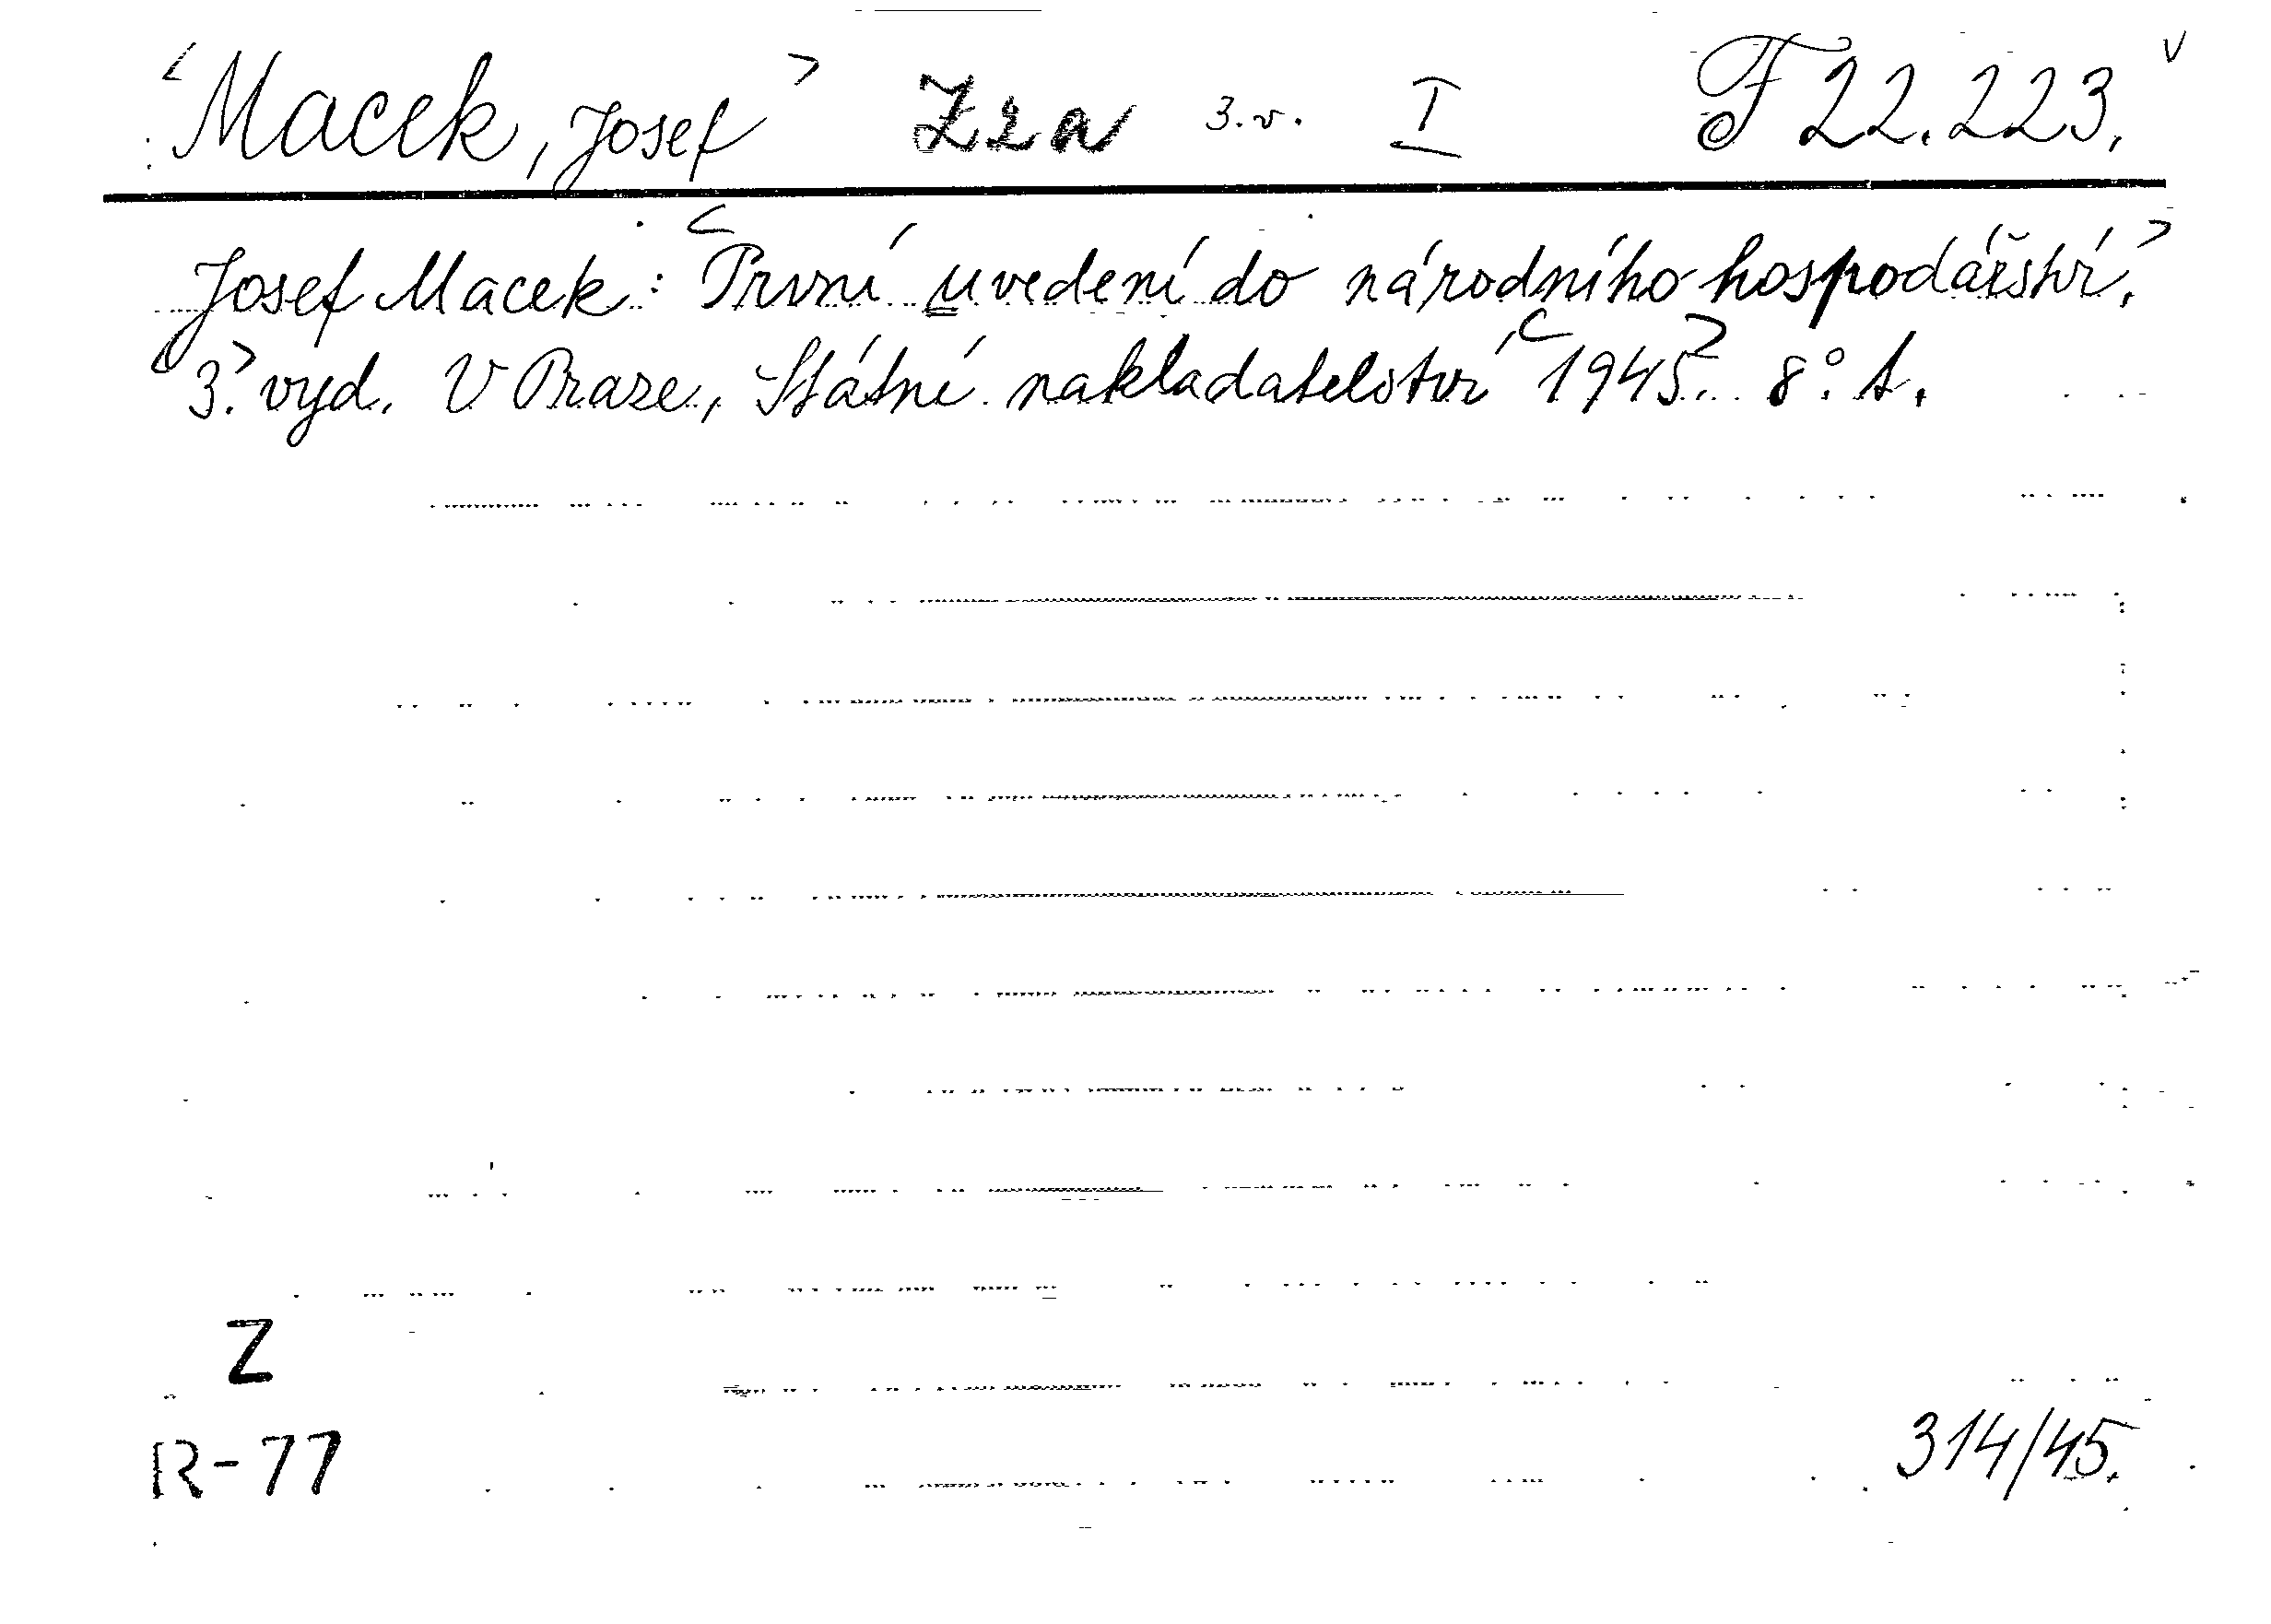 <Macek, Josef> Z2a 3.v. I F 22.223.
Josef Macek: <První uvedení do národního hospodářství.>
<3.> vyd. V Praze, Státní nakladatelství <1945>. 8°. A.
Z
R-77 314/45.